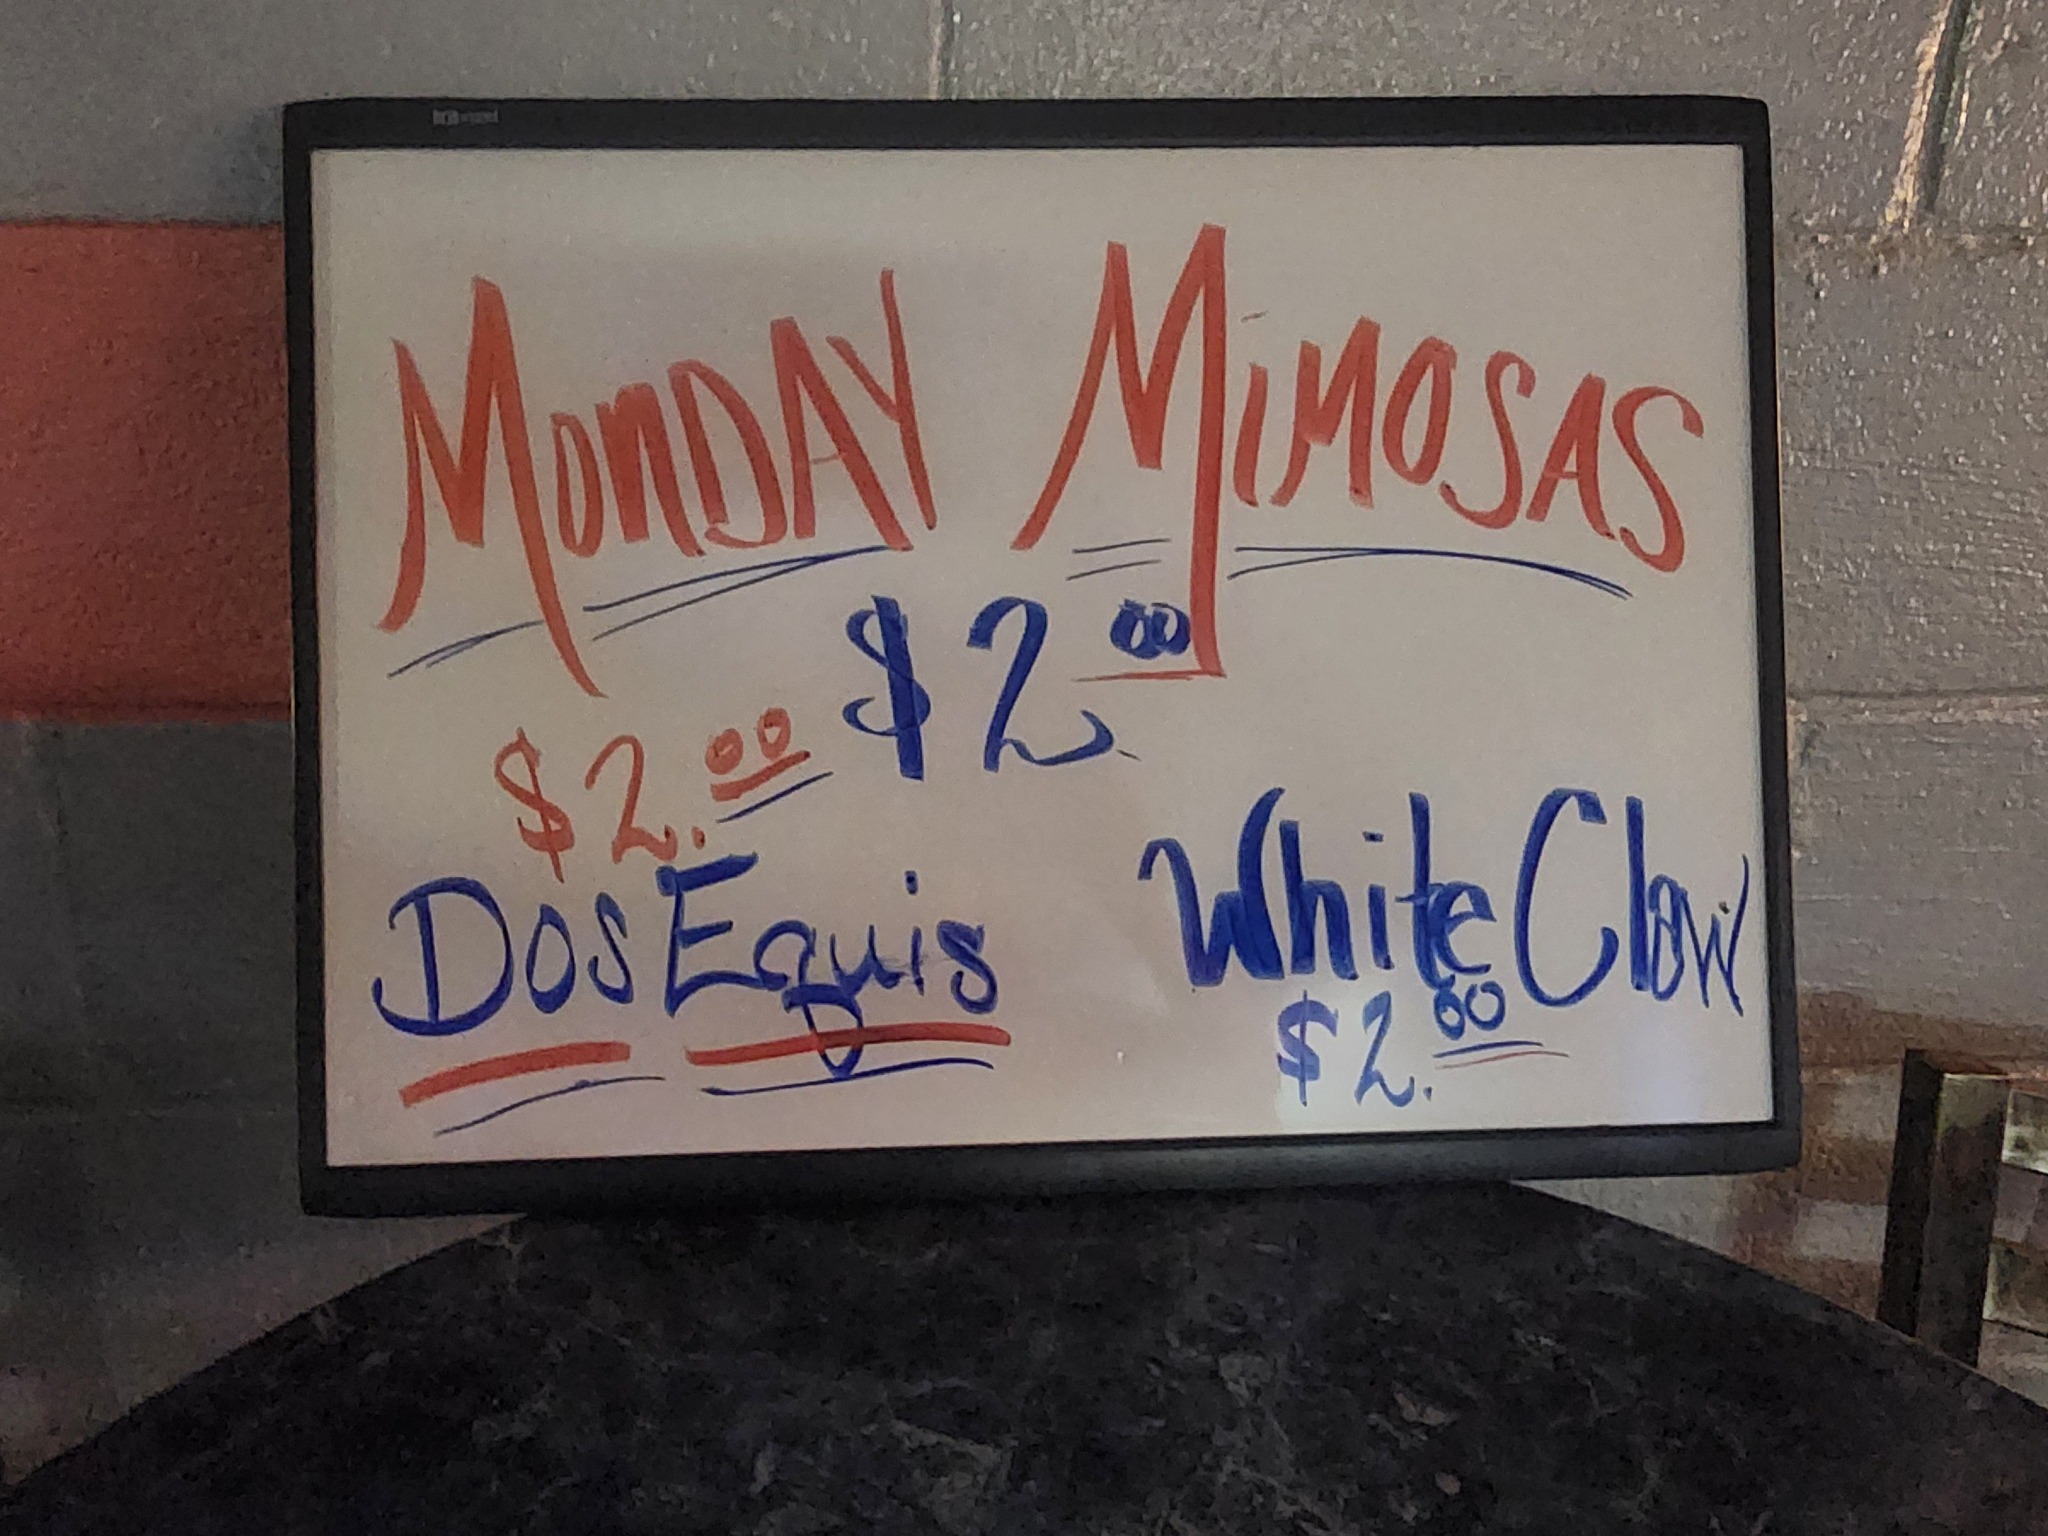 MONDAY MIMOSAS
$2.00
$2.00
Dos Equis
White Claw
$2.00